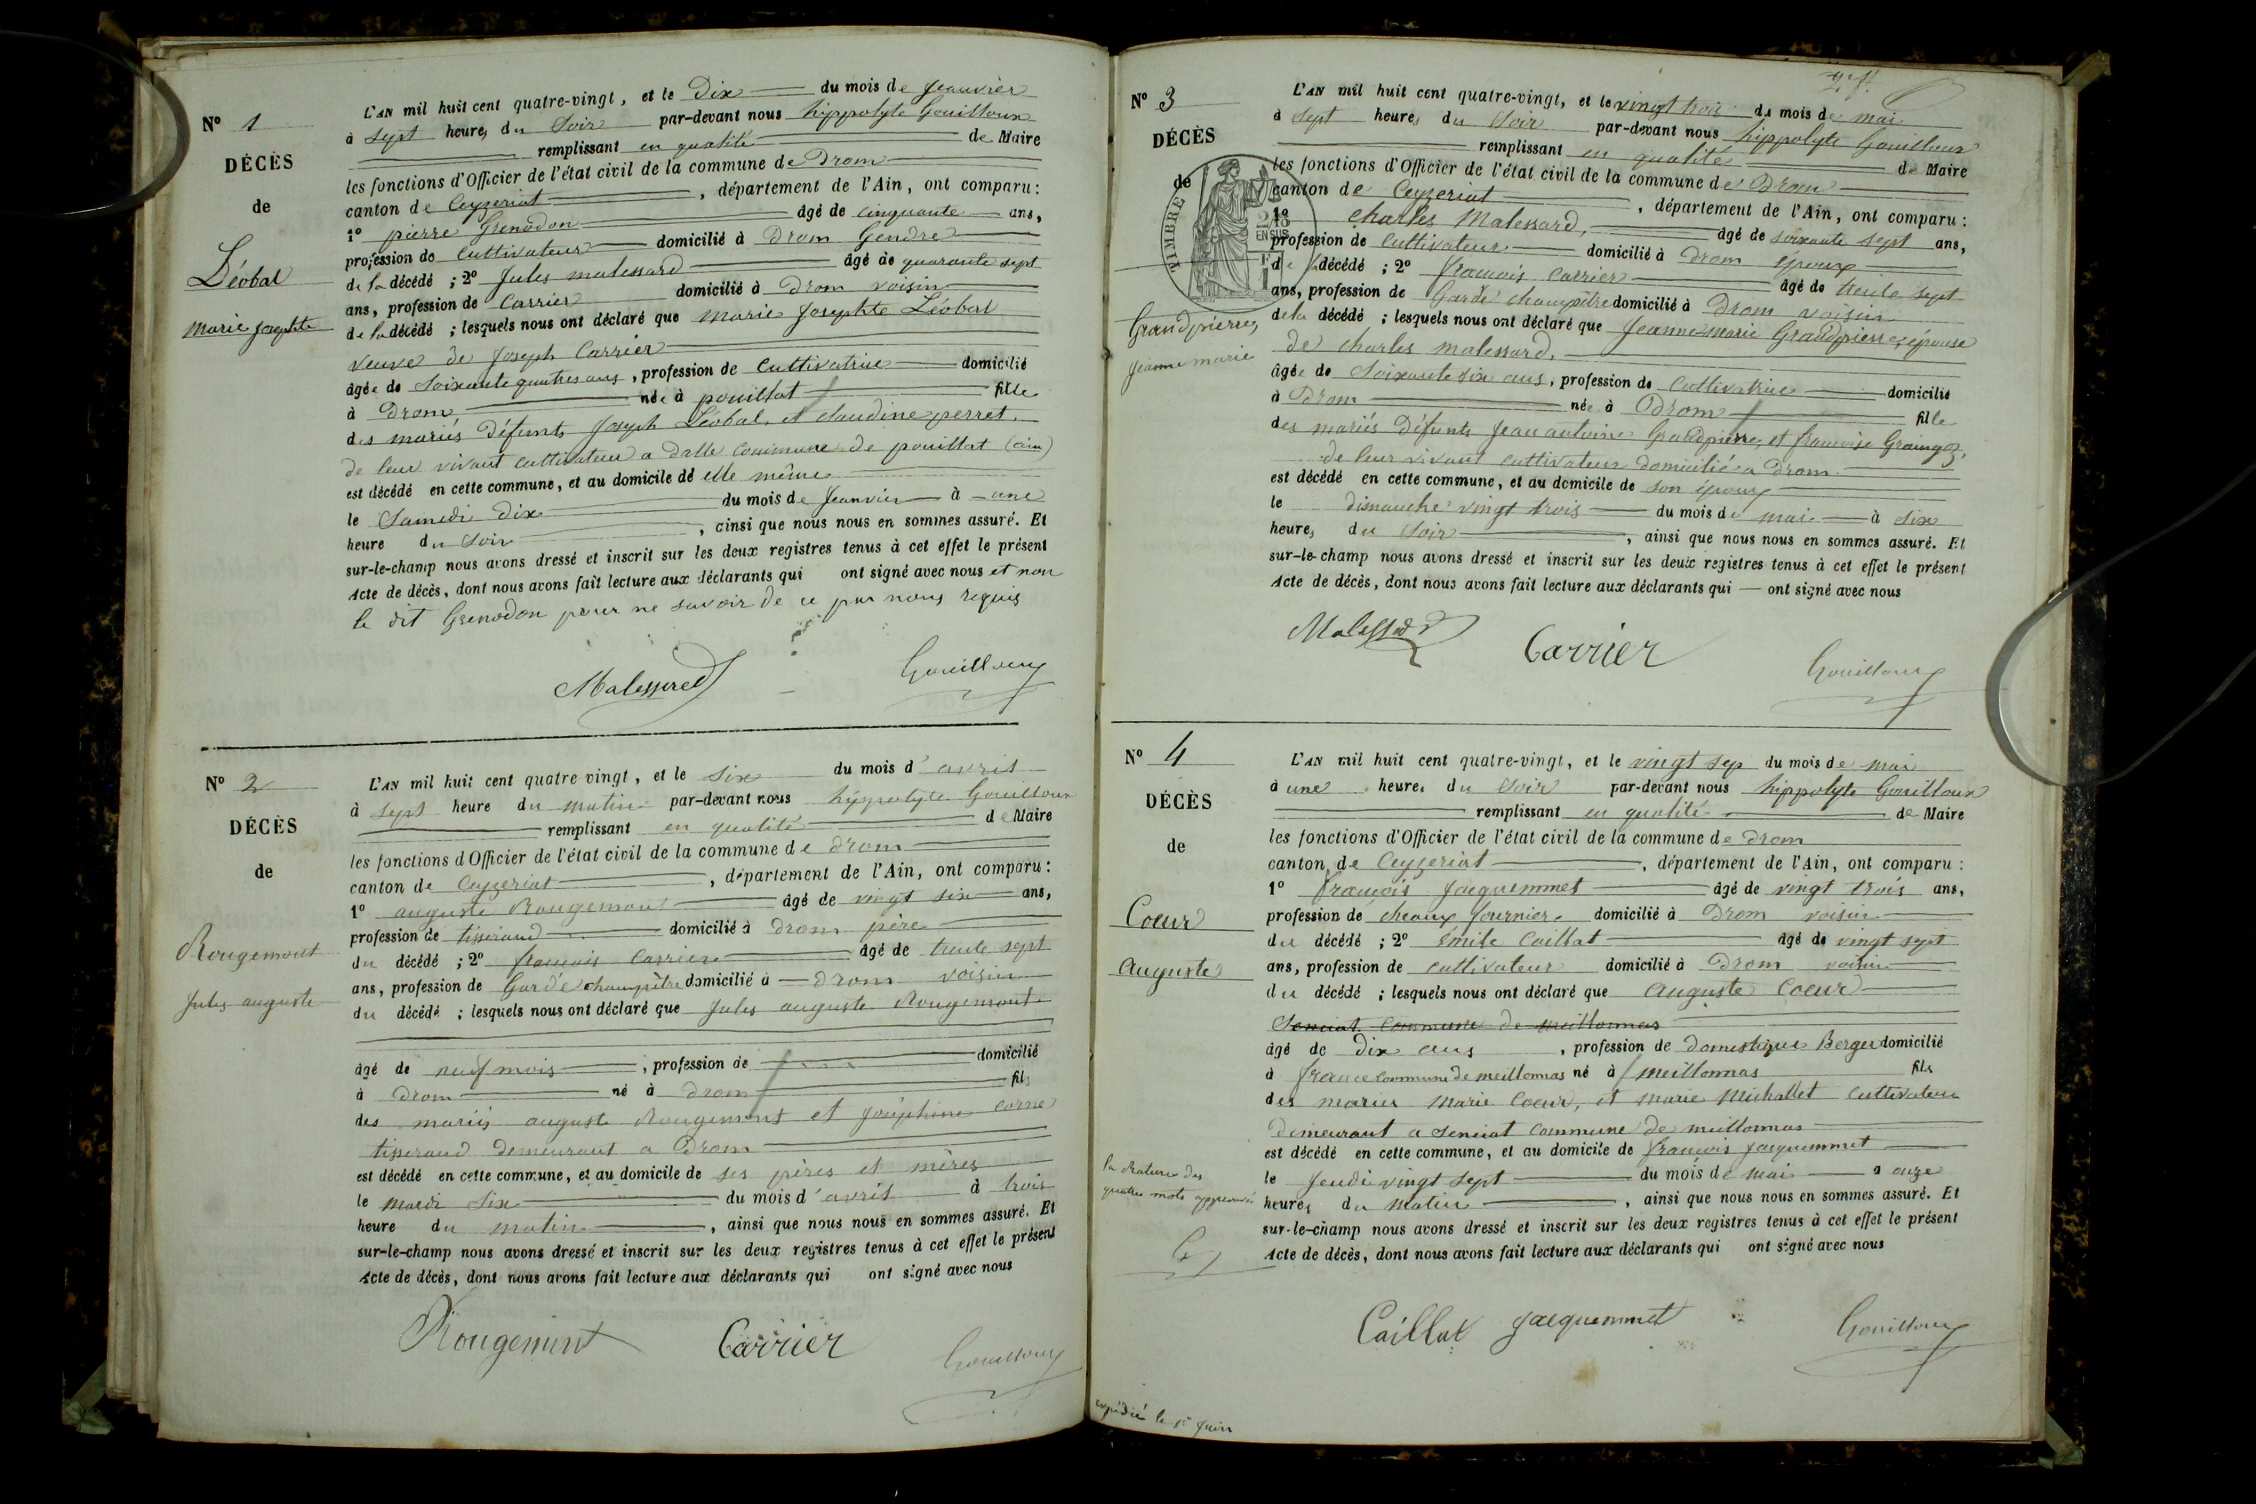 N° 1
DÉCÈS
de
Léobal
Marie Josephte
L'AN mil huit cent quatre-vingt, et le Dix du mois de Jeanvier
à sept heures du Soir par-devant nous hippolyte Gouilloux
remplissant en qualité de Maire
les fonctions d'Officier de l'état civil de la commune de Drom
canton de Ceyzeriat, département de l'Ain, ont comparu :
1° pierre Grenodon âgé de cinquante ans,
profession de cultivateur domicilié à Drom Gendre
de la décédé ; 2° Jules malessard âgé de quarante sept
ans, profession de Carrier domicilié à Drom voisin
de la décédé ; lesquels nous ont déclaré que Marie Josephte Léobal
veuve de Joseph Carrier
âgée de Soixante quatres ans, profession de Cultivatrice domicilié
à Drom née à pouillat fille
des mariés Défunts Joseph Léobal, et claudine perret.
de leur vivant cultivateur a Dalle Commune de pouillat (ain)
est décédé en cette commune, et au domicile de elle même
le Samedi Dix du mois de Jeanvier à une
heure du Soir, ainsi que nous nous en sommes assuré. Et
sur-le-champ nous avons dressé et inscrit sur les deux registres tenus à cet effet le présent
Acte de décès, dont nous avons fait lecture aux déclarants qui ont signé avec nous et non
le dit Grenodon pour ne savoir de ce par nous requis
Malessard Gouilloux
N° 2
DÉCÈS
de
Rougemont
Jules auguste
L'AN mil huit cent quatre vingt, et le six du mois d'avril
à sept heure du matin par-devant nous hippolyte Gouilloux
remplissant en qualité de Maire
les fonctions d'Officier de l'état civil de la commune de Drom
canton de Ceyzeriat, département de l'Ain, ont comparu :
1° auguste Rougemont âgé de vingt six ans,
profession de tisserand domicilié à Drom père
du décédé ; 2° francois Carrier âgé de trente sept
ans, profession de Garde champêtre domicilié à Drom voisin
du décédé ; lesquels nous ont déclaré que Jules auguste Rougemont
âgé de neuf mois, profession de domicilié
à Drom né à Drom fils
des mariés auguste Rougemont et Joséphine Corne
tisserand demeurant a Drom
est décédé en cette commune, et au domicile de ses pères et mères
le mardi six du mois d'avril à trois
heure du matin, ainsi que nous nous en sommes assuré. Et
sur-le-champ nous avons dressé et inscrit sur les deux registres tenus à cet effet le présent
Acte de décès, dont nous avons fait lecture aux déclarants qui ont signé avec nous
Rougemont Carrier Gouilloux
N° 3
DÉCÈS
de
TIMBRE
EN SUS
Grandpierre
Jeanne marie
L'AN mil huit cent quatre-vingt, et le vingt trois du mois de mai
à sept heures du Soir par-devant nous hippolyte Gouilloux
remplissant en qualité de Maire
les fonctions d'Officier de l'état civil de la commune de Drom
canton de Ceyzeriat, département de l'Ain, ont comparu :
1° charles Malessard, âgé de soixante sept ans,
profession de cultivateur domicilié à Drom époux
de la décédé ; 2° francois Carrier âgé de trente sept
ans, profession de Garde champêtre domicilié à Drom voisin
de la décédé ; lesquels nous ont déclaré que Jeanne marie Grandpierre, épouse
de charles malessard.
âgée de Soixante six ans, profession de Cultivatrice domicilié
à Drom née à Drom fille
des mariés Défunts Jean antoine Grandpierre, et francoise Graingez,
de leur vivant cultivateur domicilié a Drom
est décédé en cette commune, et au domicile de son époux
le dimanche vingt trois du mois de mai à six
heures du Soir, ainsi que nous nous en sommes assuré. Et
sur-le-champ nous avons dressé et inscrit sur les deux registres tenus à cet effet le présent
Acte de décès, dont nous avons fait lecture aux déclarants qui ont signé avec nous
Malessard Carrier Gouilloux
N° 4
DÉCÈS
de
Coeur
Auguste
la Rature des
quatre mots approuvée
L'AN mil huit cent quatre-vingt, et le vingt sep du mois de mai
à une heure du Soir par-devant nous hippolyte Gouilloux
remplissant en qualité de Maire
les fonctions d'Officier de l'état civil de la commune de Drom
canton de Ceyzeriat, département de l'Ain, ont comparu :
1° François Jacquemmet âgé de vingt trois ans,
profession de cheaux fournier domicilié à Drom voisin
du décédé ; 2° émile Caillat âgé de vingt sept
ans, profession de cultivateur domicilié à Drom voisin
du décédé ; lesquels nous ont déclaré que Auguste Coeur
Senciat commune de meillonnas
âgé de Dix ans, profession de Domestique Berger domicilié
à france Commune de meillonnas né à meillonnas fils
des maries Marie Coeur, et Marie Michallet Cultivateur
Demeurant a Senciat Commune de meillonnas
est décédé en cette commune, et au domicile de francois Jacquemmet
le Jeudi vingt sept du mois de mai à onze
heures du Matin, ainsi que nous nous en sommes assuré. Et
sur-le-champ nous avons dressé et inscrit sur les deux registres tenus à cet effet le présent
Acte de décès, dont nous avons fait lecture aux déclarants qui ont signé avec nous
Caillat Jacquemmet Gouilloux
expédié le 1er Juin